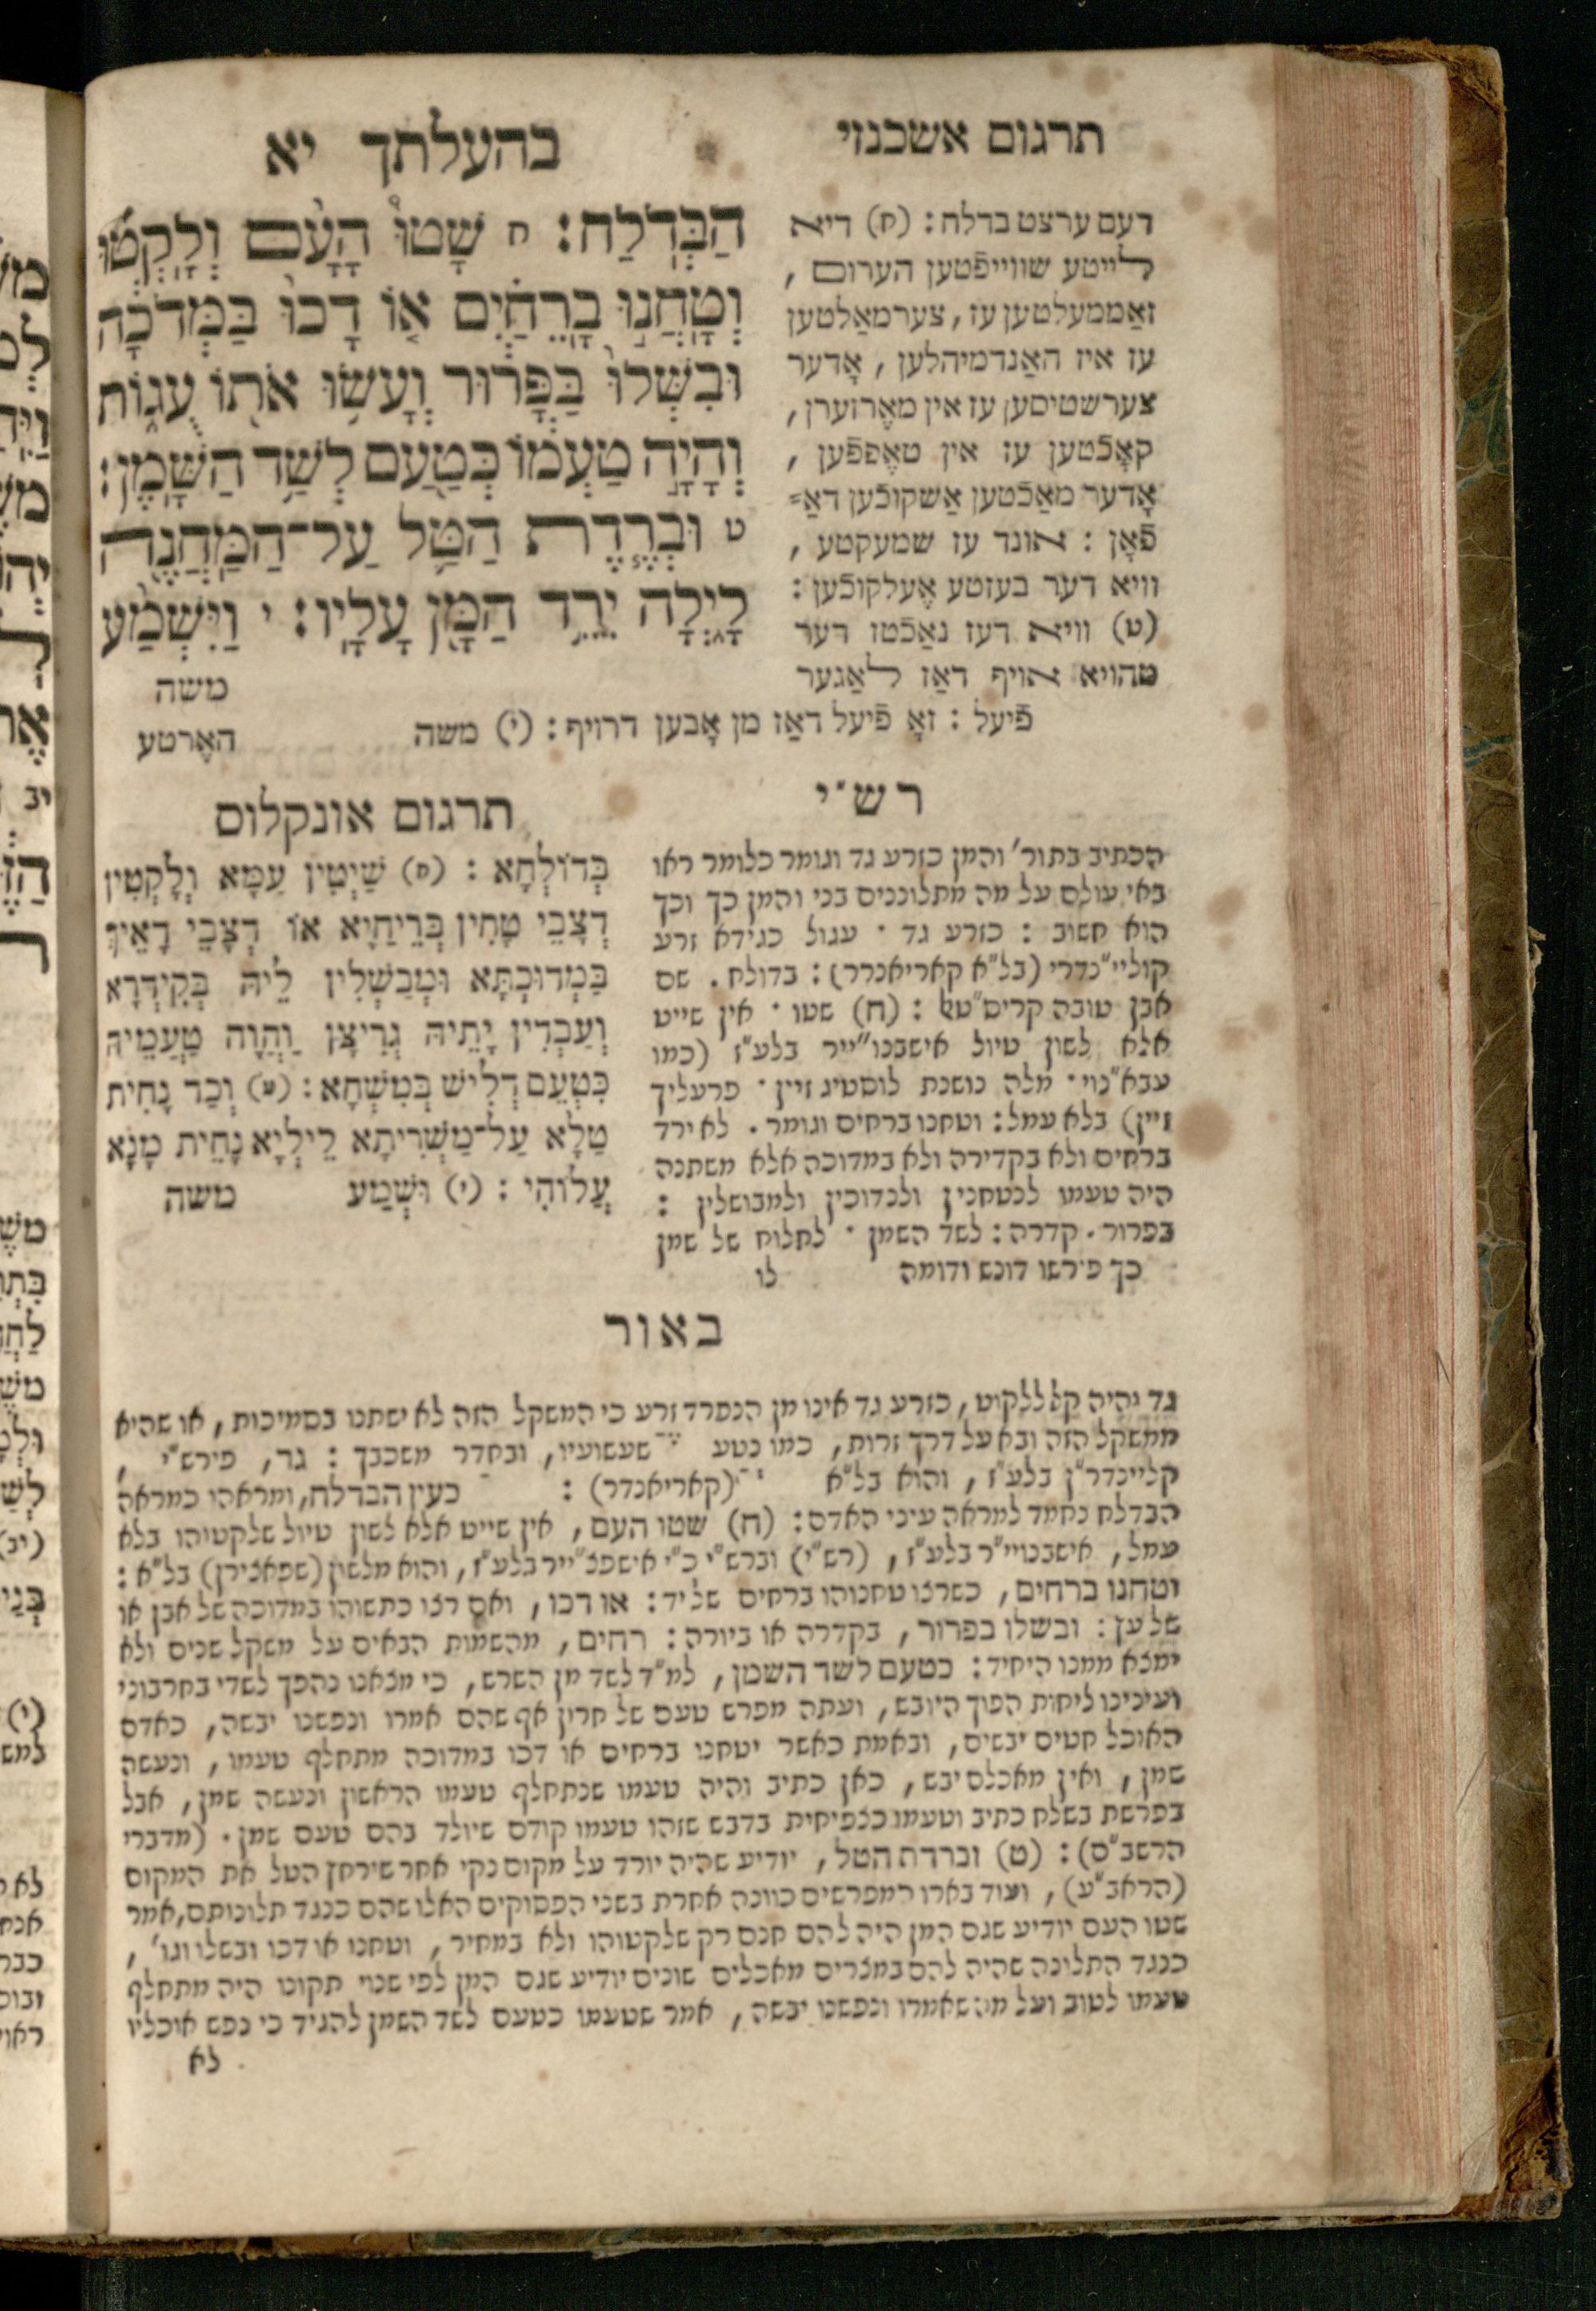 תרגום אשכנזי
בהעלתך יא
הַבְּדֹלַח: ח שָׁטוּ הָעָם וְלָקְטוּ
וְטָחֲנוּ בָרֵחַיִם אוֹ דָכוּ בַּמְּדֹכָה
וּבִשְּׁלוּ בַּפָּרוּר וְעָשׂוּ אֹתוֹ עֻגוֹת
וְהָיָה טַעְמוֹ כְּטַעַם לְשַׁד הַשָּׁמֶן:
ט וּבְרֶדֶת הַטַּל עַל־הַמַּחֲנֶה
לָיְלָה יֵרֵד הַמָּן עָלָיו: י וַיִּשְׁמַע
משה
דעם ערצט בדלח: (ח) דיא
לייטע שווייפֿטען הערום,
זאַממעלטען עז, צערמאַלטען
עז איז האַנדמיהלען, אָדער
צערשטיסען עז אין מאֶרזערן,
קאָכֿטען עז אין טאֶפּפֿען,
אָדער מאַכֿטען אַשקוכֿען דאַ=
פֿאָן: אונד עז שמעקטע,
וויא דער בעזטע אֶעלקוכֿען:
(ט) וויא דעז נאַכֿטז דער
טהויא אויף דאַז לאַגער
פֿיעל: זאָ פֿיעל דאַז מן אָבען דרויף: (י) משה האֶרטע
רש"י
הכתיב בתור' והמן כזרע גד וגומר כלומר ראו
באי עולם על מה מתלוננים בני והמן כך וכך
הוא חשוב: כזרע גד · עגול כגידא זרע
קוליי"נדרי (בל"א קאריאנדר): בדולח. שם
אבן טובה קריס"טל: (ח) שטו · אין שייט
אלא לשון טיול אישבנו"ייר בלע"ז (כמו
עבא"נוי · מלה נושנת לוסטיג זיין · פרעליך
זיין) בלא עמל: וטחנו ברחים וגומר. לא ירד
ברחים ולא בקדירה ולא במדוכה אלא משתנה
היה טעמו לנטחנין ולנדוכין ולמבושלין:
בפרור. קדרה: לשד השמן · לחלוח של שמן
כך פירשו דונש ודומה לו
תרגום אונקלוס
בְּדוֹלְחָא: (ח) שַׁיְטִין עַמָּא וְלָקְטִין
דְצָבֵי טָחִין בְּרֵיחַיָא אוֹ דְצָבֵי דָאֵיךְ
בַּמְדוּכְתָּא וּמְבַשְׁלִין לֵיהּ בְּקִידְרָא
וְעַבְדִין יָתֵיהּ גְרִיצָן וַהֲוָה טַעֲמֵיהּ
כִּטְעֵם דְלִישׁ בְּמִשְׁחָא: (ט) וְכַד נָחִית
טַלָא עַל־מַשְׁרִיתָא לֵילְיָא נָחֵית מָנָא
עֲלוֹהִי: (י) וּשְׁמַע משה
באור
גד והיה קל ללקוט, כזרע גד אינו מן הנפרד זרע כי המשקל הזה לא ישתנו בסמיכות, או שהיא
ממשקל הזה ובא על דרך זרות, כמו נטע שעשועיו, ובחדר משכבך: גד, פירש"י,
קליינדר"ן בלע"ז, והוא בל"א (קאריאנדר): כעין הבדלח, ומראהו כמראה
הבדלח נחמד למראה עיני האדם: (ח) שטו העם, אין שייט אלא לשון טיול שלקטיהו בלא
עמל, אישבנויי"ר בלע"ז, (רש"י) וברש"י כ"י אישפצ"ייר בלע"ז, והוא מלשון (שפאצירן) בל"א:
וטחנו ברחים, כשרצו טחנוהו ברחים של יד: או דכו, ואם רצו כתשוהו במדוכה של אבן או
של עץ: ובשלו בפרור, בקדרה או ביורה: רחים, מהשמות הבאים על משקל שנים ולא
ימצא ממנו היחיד: כטעם לשד השמן, למ"ד לשד מן השרש, כי מצאנו נהפך לשדי בחרבוני
ועיניינו ליחות הפוך היובש, ועתה מפרש טעם של חרין אף שהם אמרו ונפשנו יבשה, כאדם
האוכל חטים יבשים, ובאמת כאשר יטחנו ברחים או דכו במדוכה מתחלף טעמו, ונעשה
שמן, ואין מאכלם יבש, כאן כתיב והיה טעמו שנתחלף טעמו הראשון ונעשה שמן, אבל
בפרשת בשלח כתיב וטעמו כצפיחית בדבש שזהו טעמו קודם שיולד בהם טעם שמן. (מדברי
הרשב"ם): (ט) וברדת הטל, יודיע שהיה יורד על מקום נקי אחר שירחץ הטל את המקום
(הראב"ע), ועוד בארו המפרשים כוונה אחרת בשני הפסוקים האלו שהם כנגד תלונותם, אמר
שטו העם יודיע שגם המן היה להם חנם רק שלקטוהו ולא במחיר, וטחנו או דכו ובשלו וגו',
כנגד התלונה שהיה להם במצרים מאכלים שונים יודיע שגם המן לפי שנוי תקונו היה מתחלף
טעמו לטוב ועל מה שאמרו ונפשנו יבשה, אמר שטעמו כטעם לשד השמן להגיד כי נפש אוכליו
לא